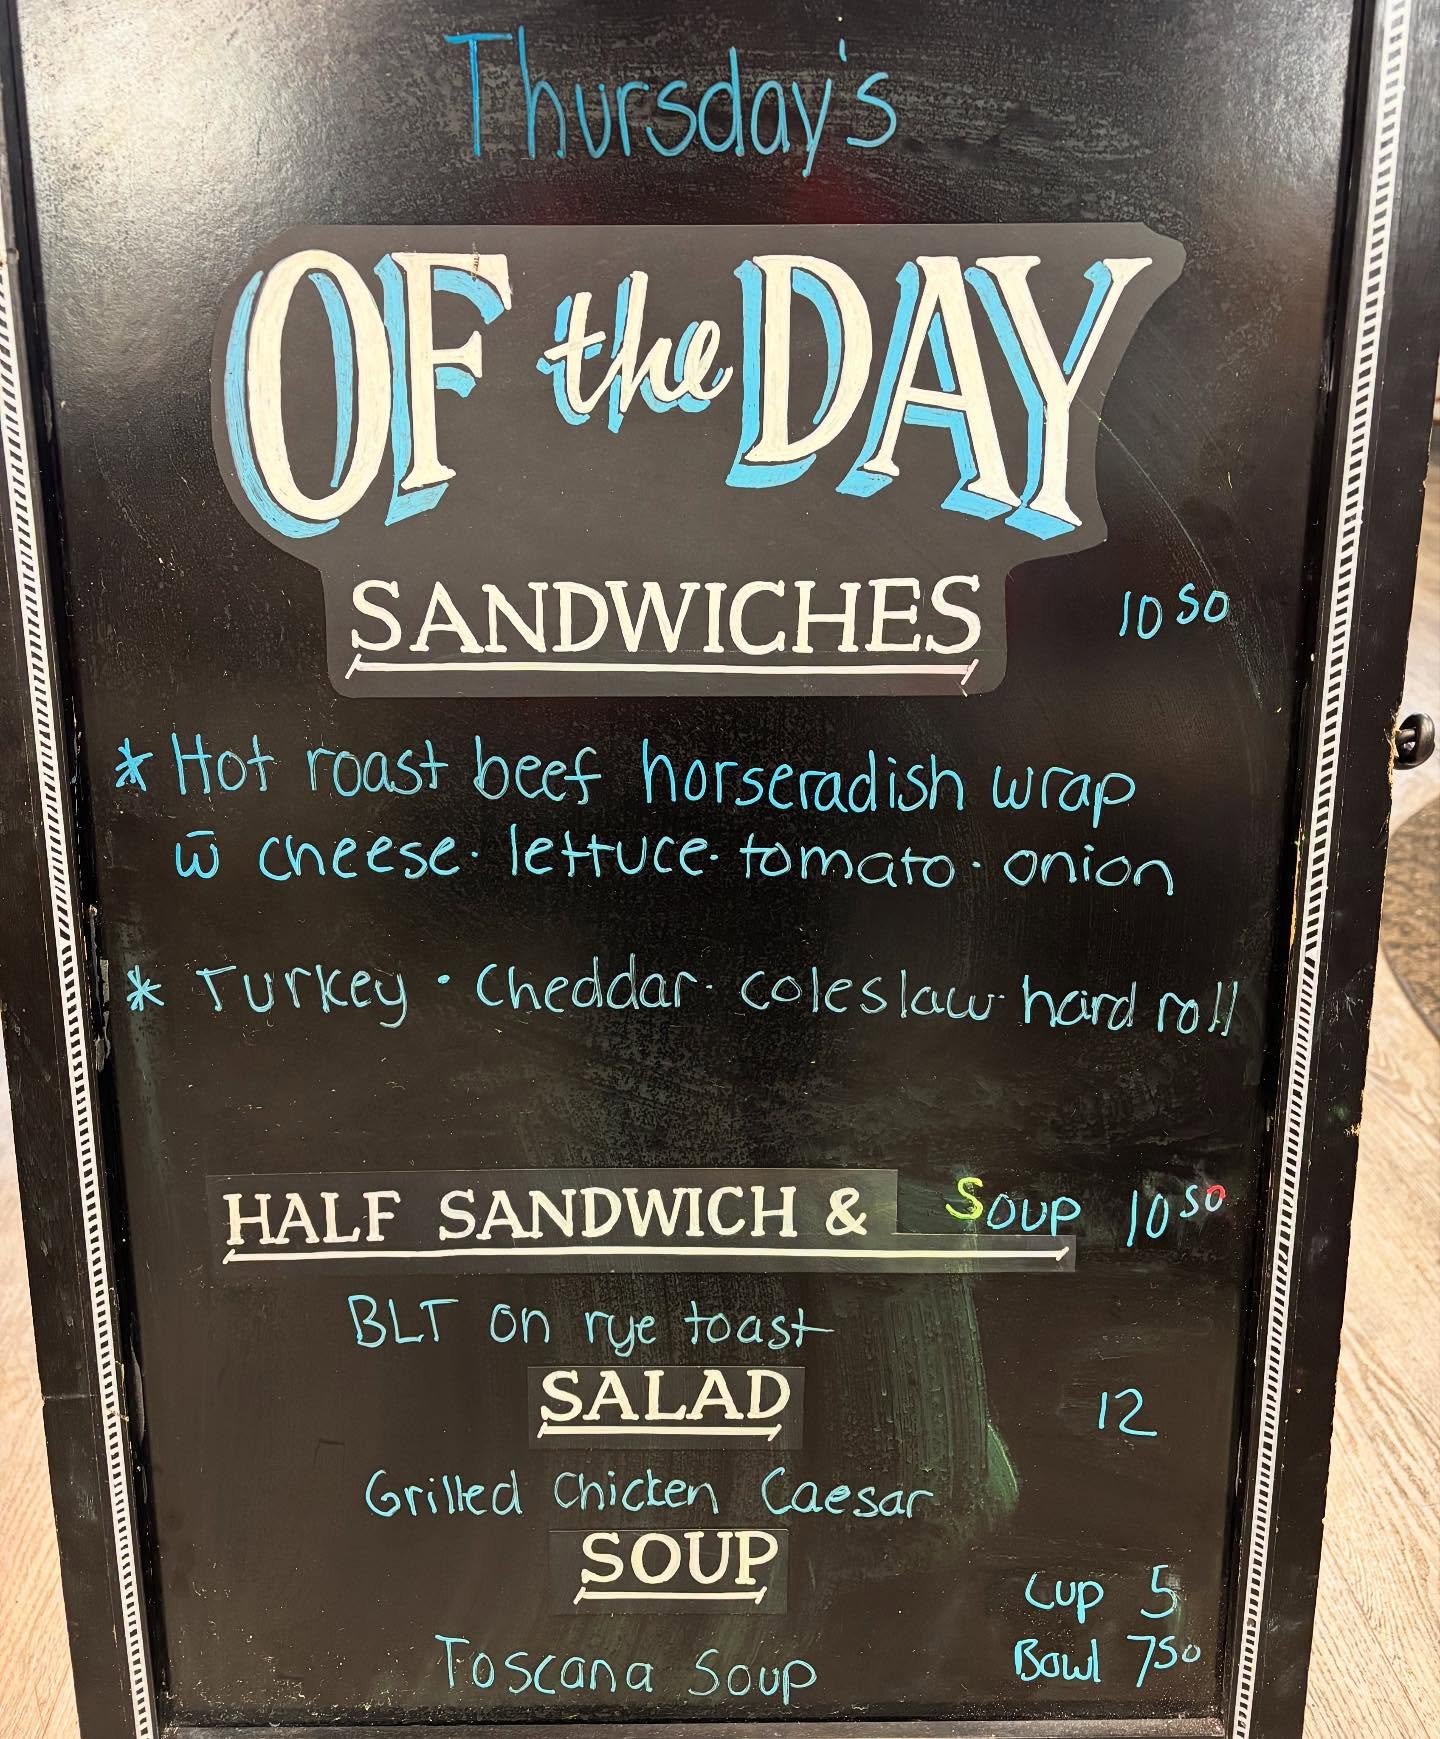 Thursday's
OF the DAY
SANDWICHES 10 50
* Hot roast beef horseradish wrap
w̄ cheese · lettuce · tomato · onion
* Turkey · Cheddar · coleslaw · hard roll
HALF SANDWICH & Soup 10 50
BLT on rye toast
SALAD 12
Grilled Chicken Caesar
SOUP
Cup 5
Toscana Soup Bowl 7 50